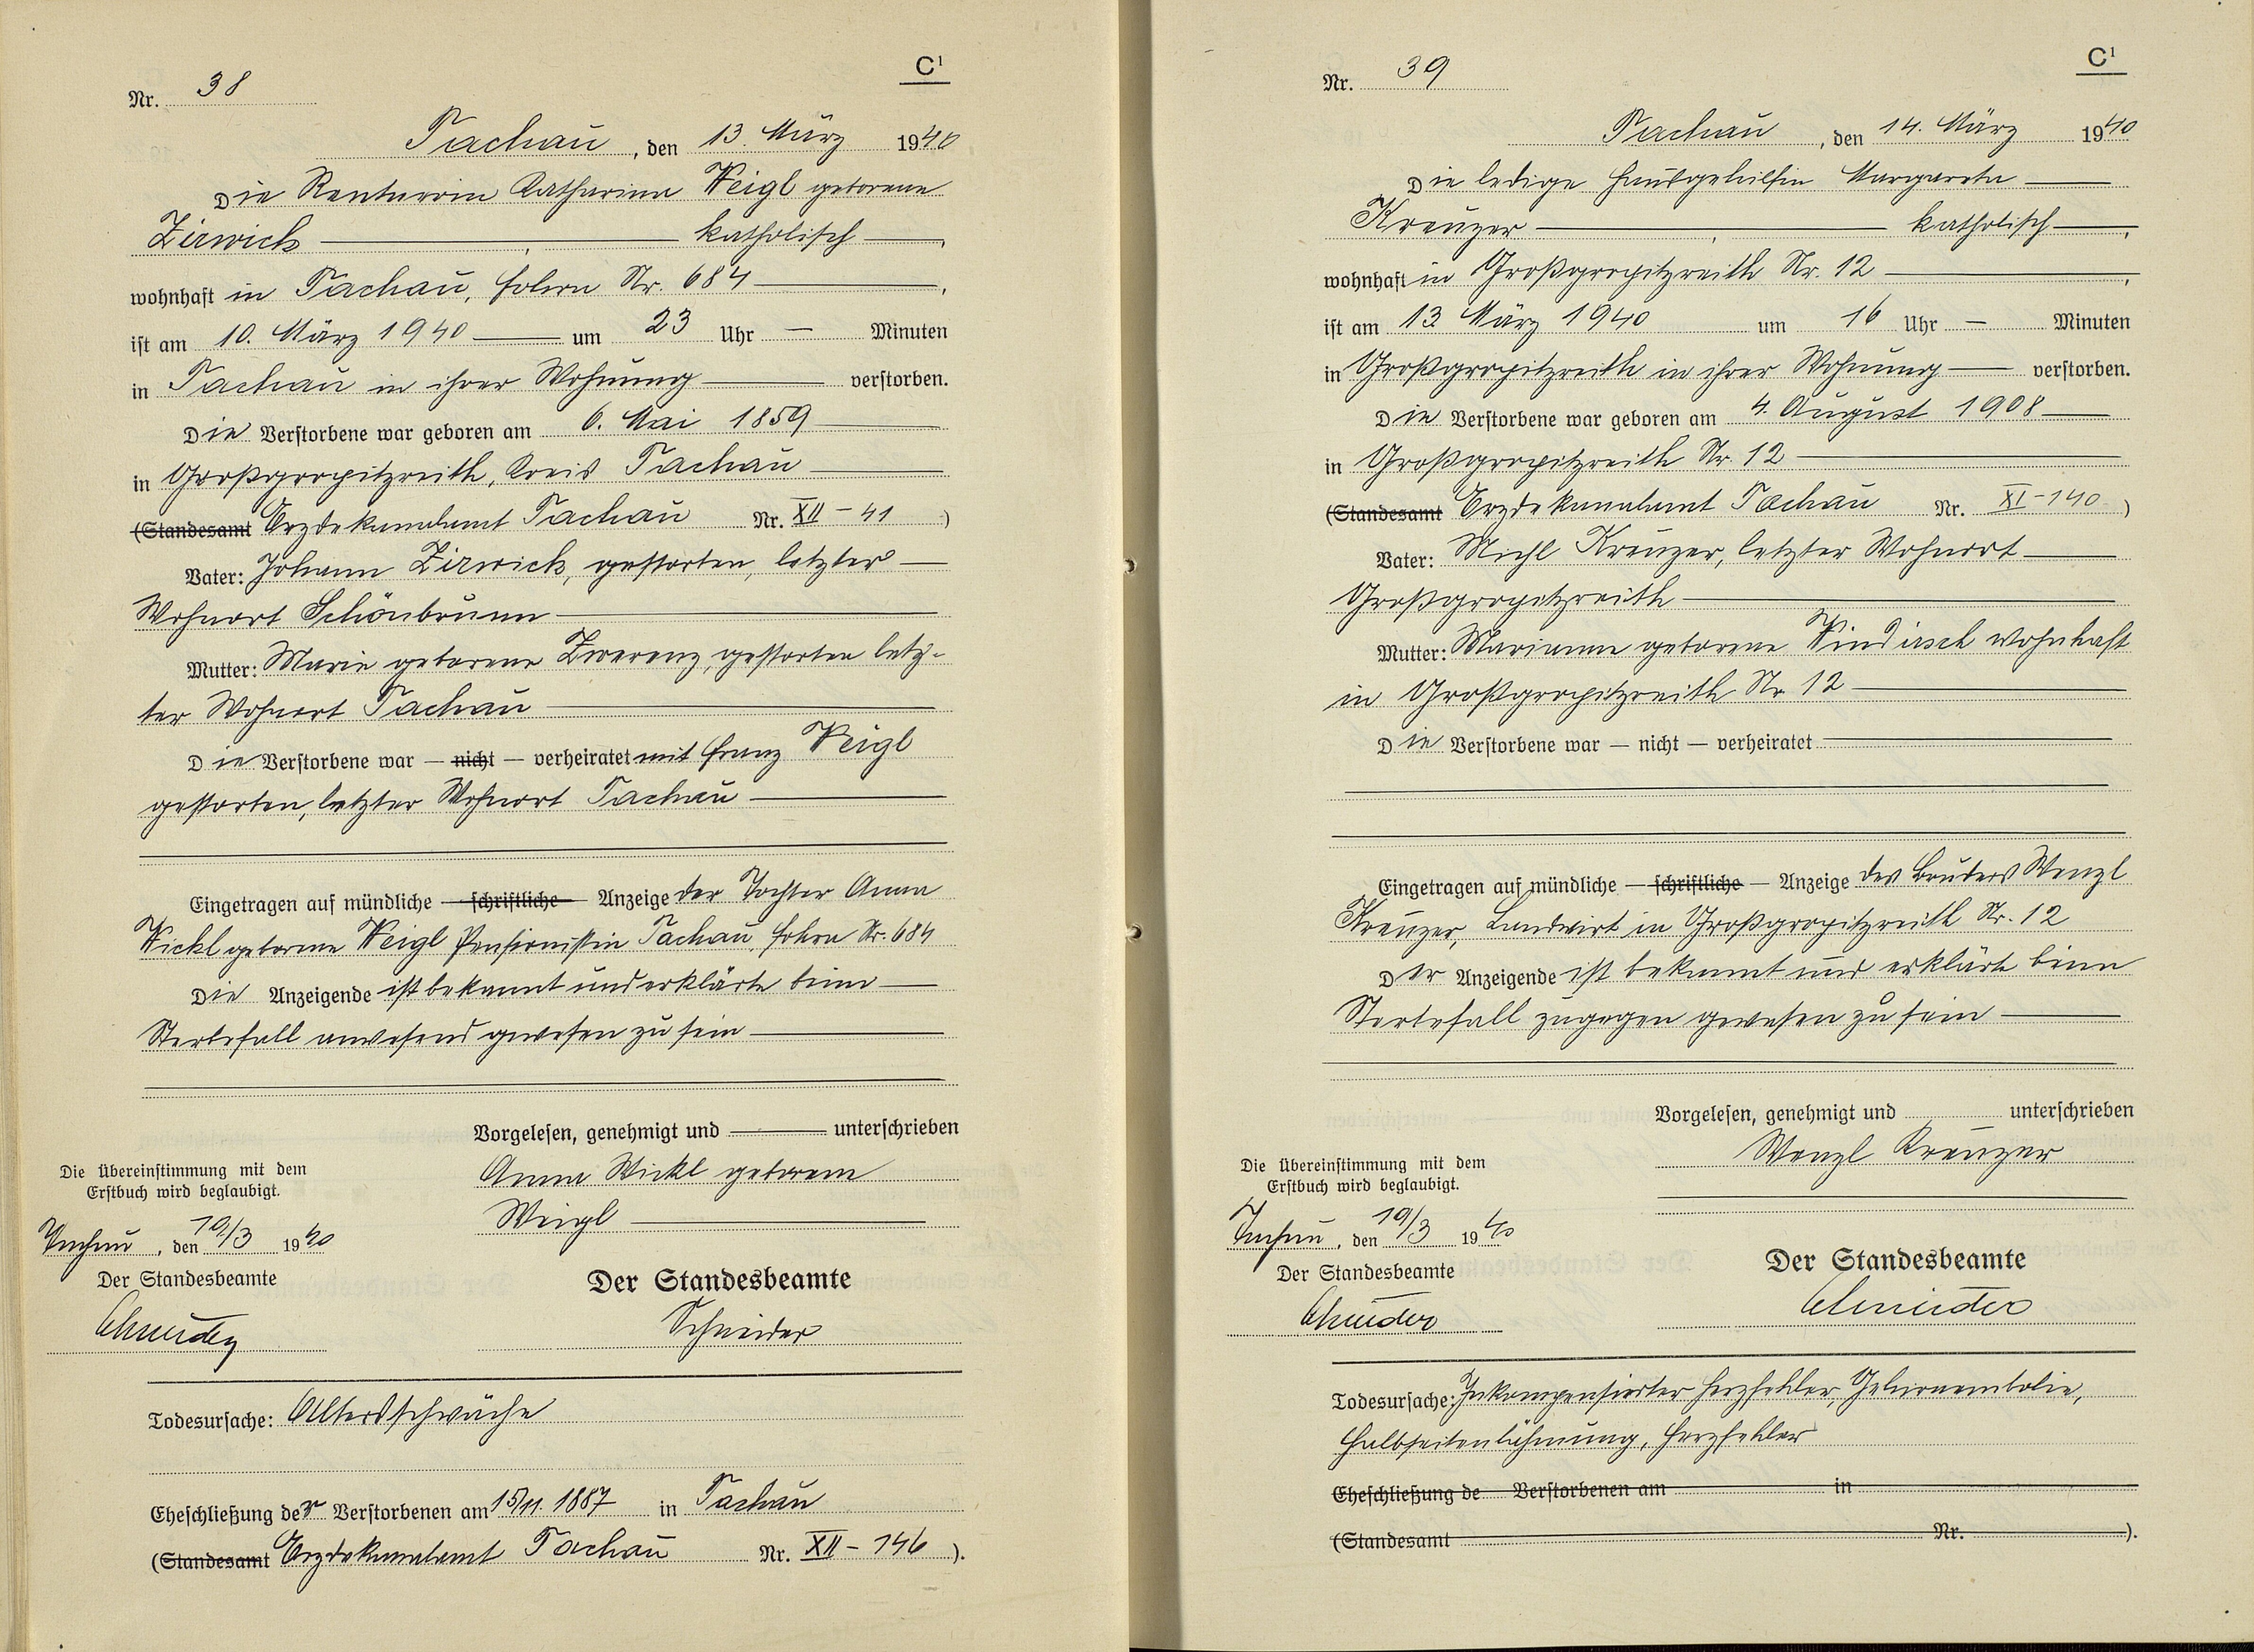 C¹
Nr. 38
Tachau, den 13. März 1940
Die Rentnerin Katharina Weigl geborene
Zirwick katholisch,
wohnhaft in Tachau, Nr. 684,
ist am 10. März 1940 um 23 Uhr — Minuten
in Tachau in ihrer Wohnung verstorben.
Die Verstorbene war geboren am 6. Mai 1859
in Großgropitzreith, Kreis Tachau
(Standesamt Erzdekanalamt Tachau Nr. XII - 41)
Vater: Johann Zirwick, gestorben, letzter
Wohnort Schönbrunn
Mutter: Marie geborene Zwerenz, gestorben letz-
ter Wohnort Tachau
Die Verstorbene war — nicht — verheiratet mit Franz Weigl
gestorben, letzter Wohnort Tachau
Eingetragen auf mündliche — schriftliche — Anzeige der Tochter Anna
Wickl geborene Weigl Pensionistin Tachau, Nr. 684
Die Anzeigende ist bekannt und erklärte beim
Sterbefall anwesend gewesen zu sein
Vorgelesen, genehmigt und — unterschrieben
Anna Wickl geborene
Weigl
Die Übereinstimmung mit dem
Erstbuch wird beglaubigt.
Tachau, den 19/3 1940
Der Standesbeamte
Schneider
Der Standesbeamte
Schneider
Todesursache: Altersschwäche
Eheschließung der Verstorbenen am 15/11. 1887 in Tachau
(Standesamt Erzdekanalamt Tachau Nr. XII - 146).
C¹
Nr. 39
Tachau, den 14. März 1940
Die ledige Hausgehilfin Margareta
Kreuzer katholisch,
wohnhaft in Großgropitzreith Nr. 12,
ist am 13. März 1940 um 16 Uhr — Minuten
in Großgropitzreith in ihrer Wohnung verstorben.
Die Verstorbene war geboren am 4. August 1908
in Großgropitzreith Nr. 12
(Standesamt Erzdekanalamt Tachau Nr. XI - 140)
Vater: Michl Kreuzer, letzter Wohnort
Großgropitzreith
Mutter: Marianne geborene Windirsch wohnhaft
in Großgropitzreith Nr. 12
Die Verstorbene war — nicht — verheiratet
Eingetragen auf mündliche — schriftliche — Anzeige des Bruders Wenzl
Kreuzer, Landwirt in Großgropitzreith Nr. 12
Der Anzeigende ist bekannt und erklärte beim
Sterbefall zugegen gewesen zu sein
Vorgelesen, genehmigt und unterschrieben
Wenzl Kreuzer
Die Übereinstimmung mit dem
Erstbuch wird beglaubigt.
Tachau, den 19/3 1940
Der Standesbeamte
Schneider
Der Standesbeamte
Schneider
Todesursache: Inkompensierter Herzfehler, Gehirnembolie,
Halbseitenlähmung, Herzfehler
Eheschließung de Verstorbenen am in
(Standesamt Nr. ).